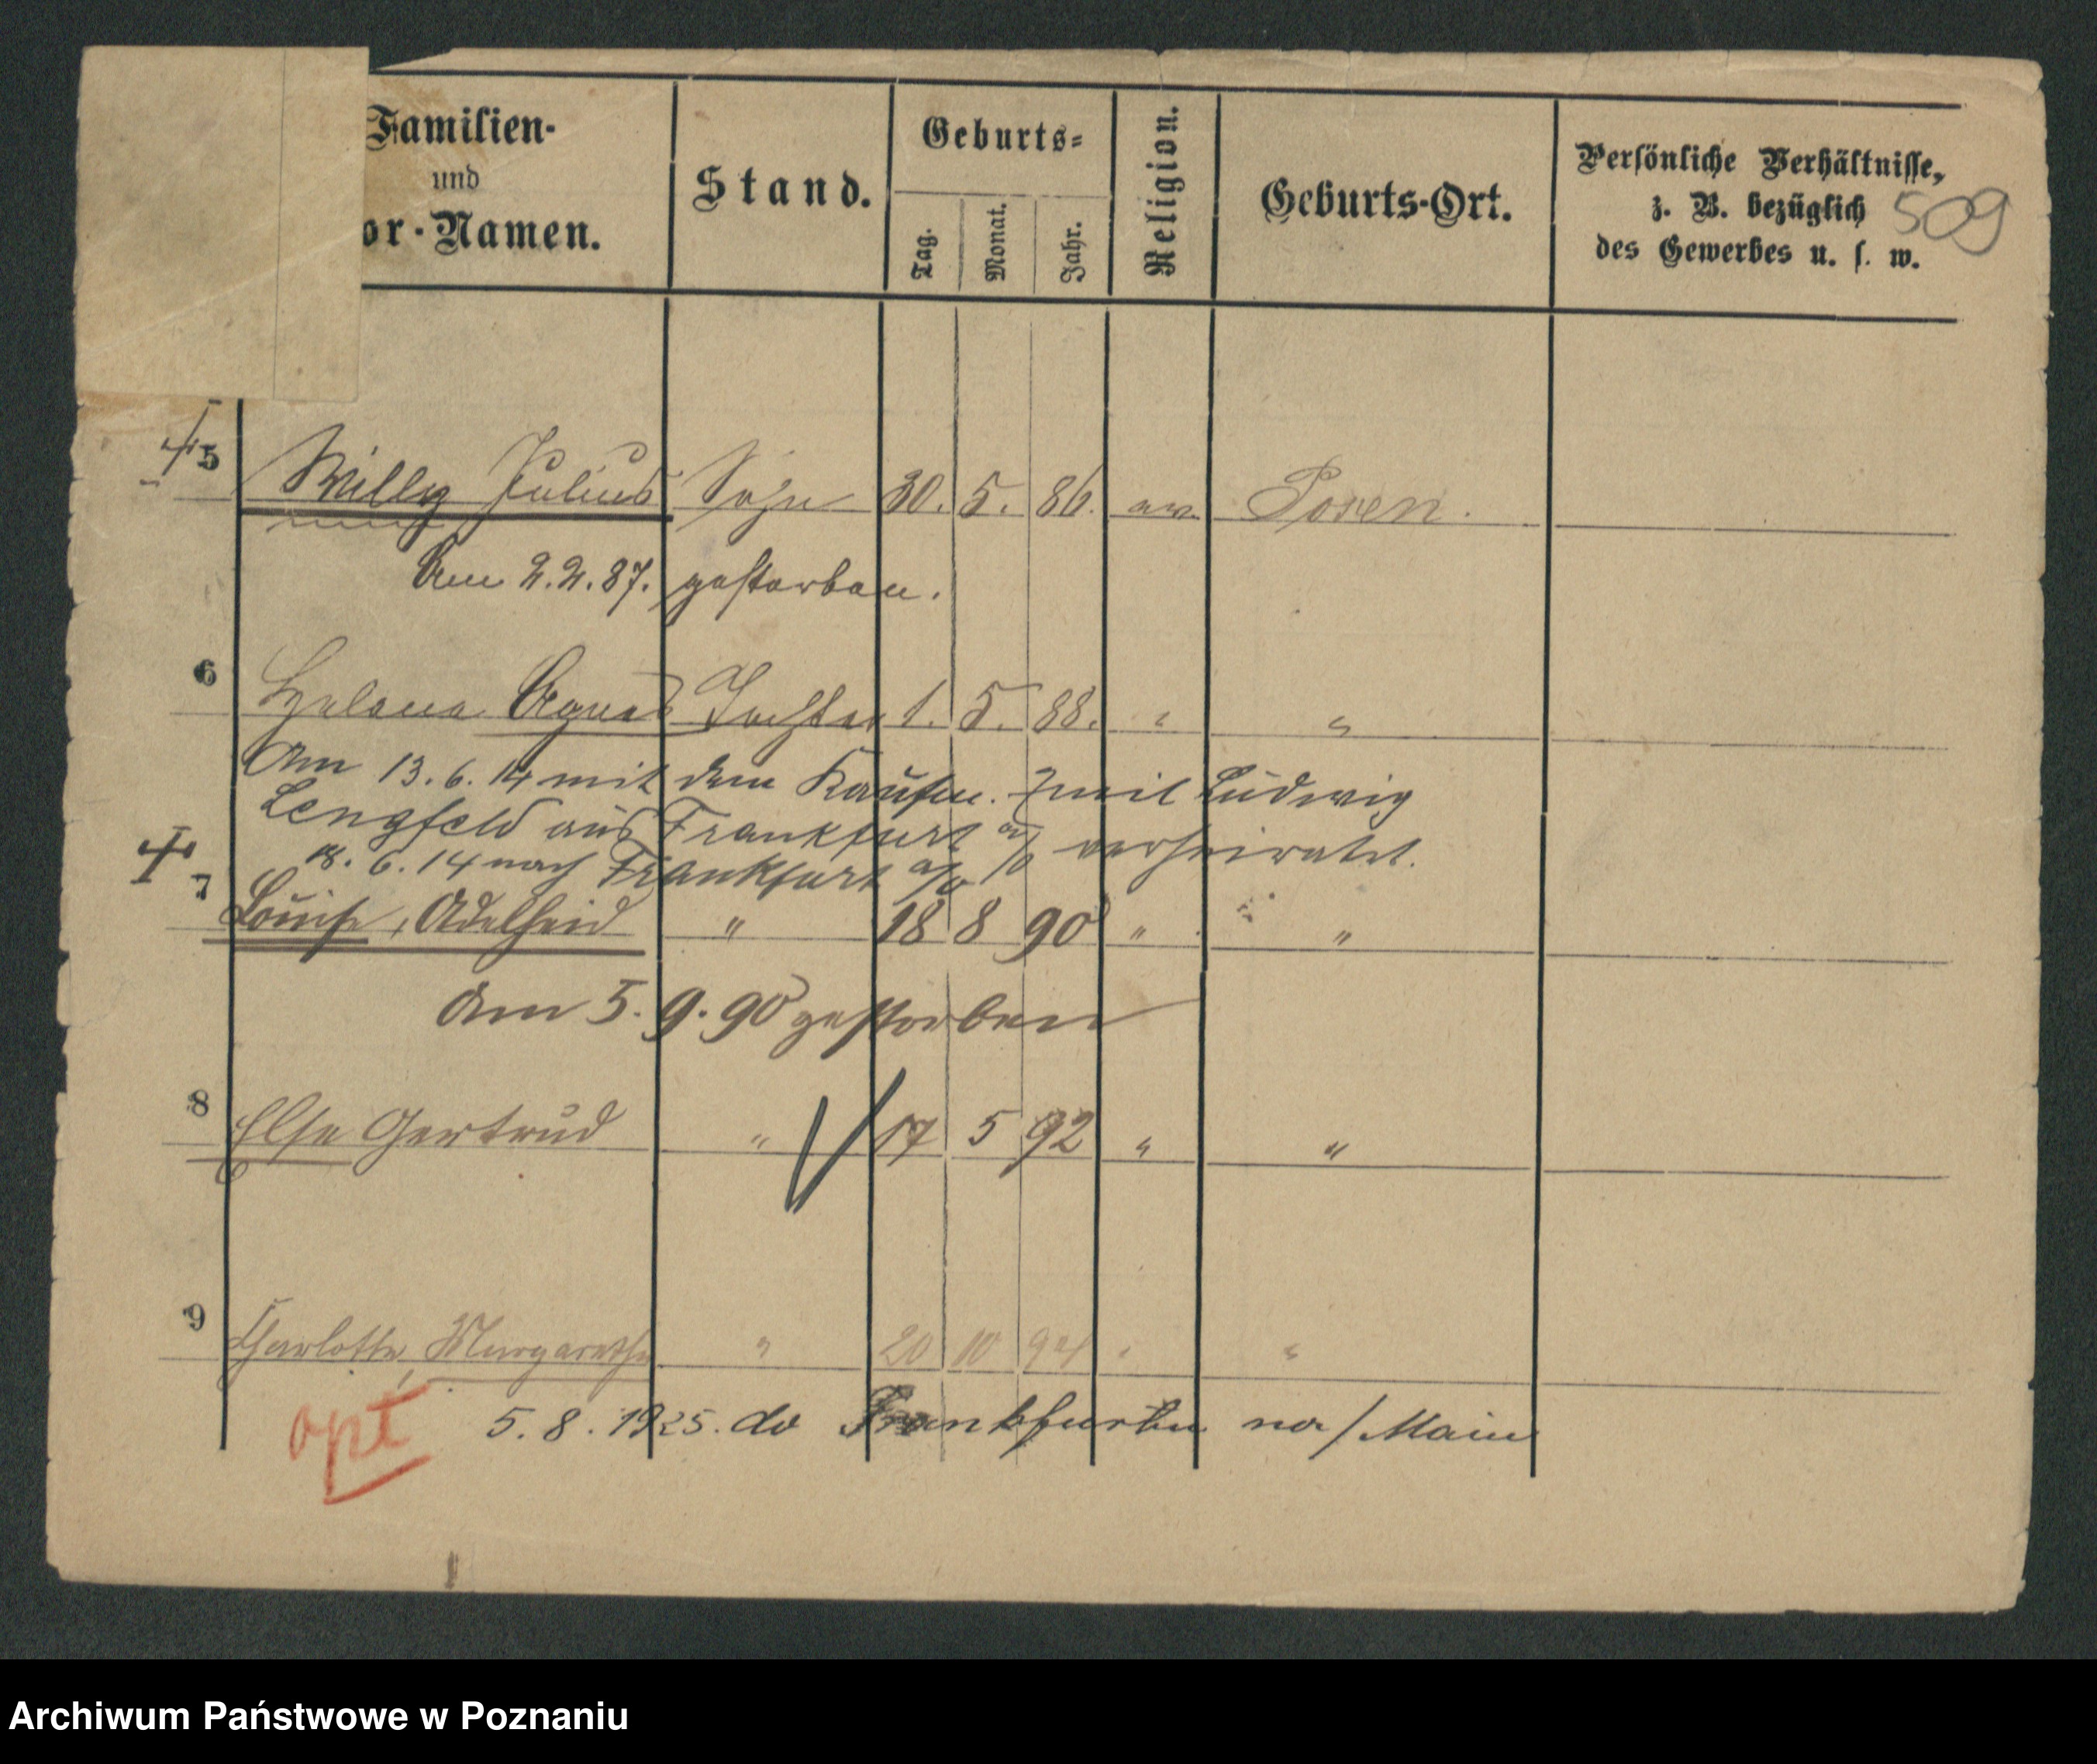 Familien-
und
or-Namen.
Stand.
Geburts-
Tag.
Monat.
Jahr.
Religion.
Geburts-Ort.
Persönliche Verhältnisse,
z. B. bezüglich
des Gewerbes u. s. w.
509
5 Willy Julius Sohn 30. 5. 86. Posen.
Am 2.2.87. gestorben.
6 Helene Agnes Tochter 1. 5. 88. " "
Am 13.6.14 mit dem Kaufm. Emil Ludwig
Lengfeld aus Frankfurt a/O verheiratet.
18. 6. 14 nach Frankfurt a/O
7 Louise, Adelheid " 18 8 90 " "
Am 5.9.90 gestorben
8 Else Gertrud " 17 5 92 " "
9 Charlotte, Margarethe " 20 10 94 " "
opt 5.8.1925. do Frankfurtu na/Main
Archiwum Państwowe w Poznaniu